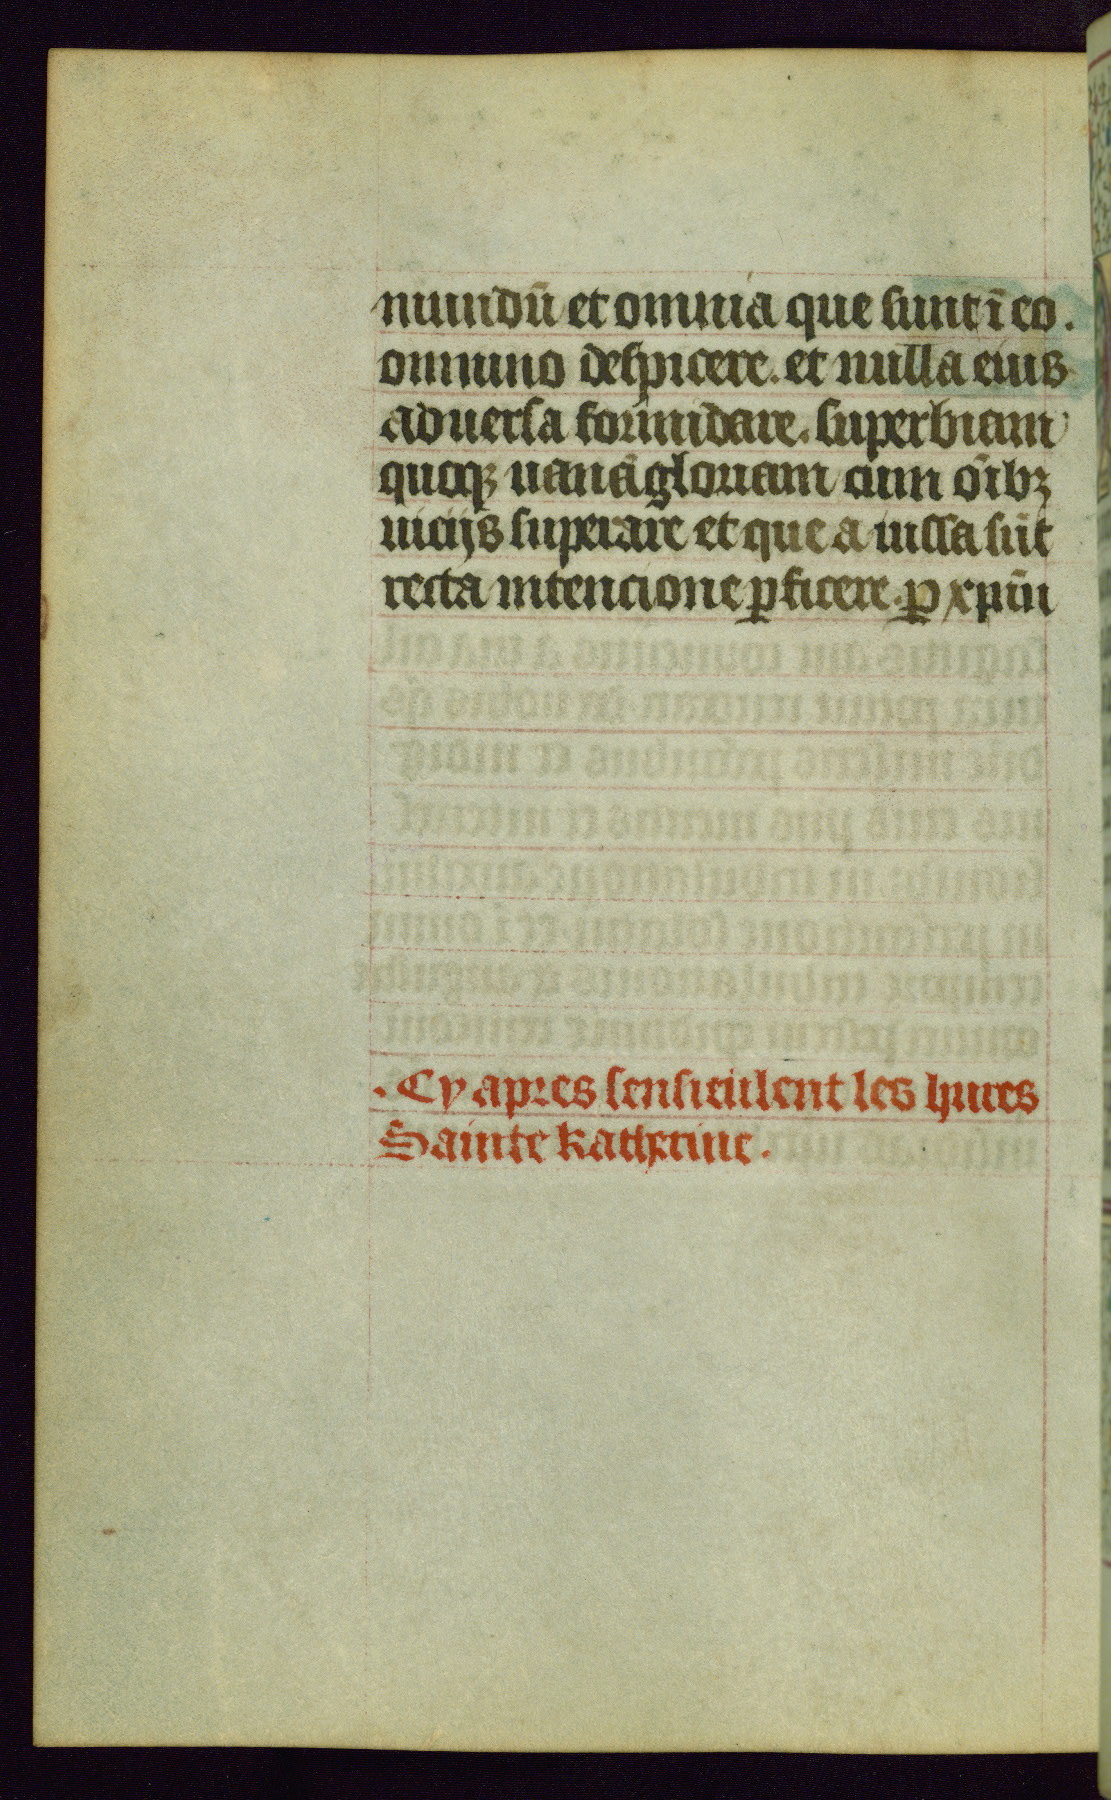 mundū et omnia que sunt ī eo.
omnino despicere. et nulla eius
aduersa formidare. superbiam
quoqꝫ uanā gloriam cum oībꝫ
uicijs superare et que a iussa sūt
recta intencione ꝑficere. ꝑ xpm̄
. Cy apres sensieulent les hures
Sainte katherine.